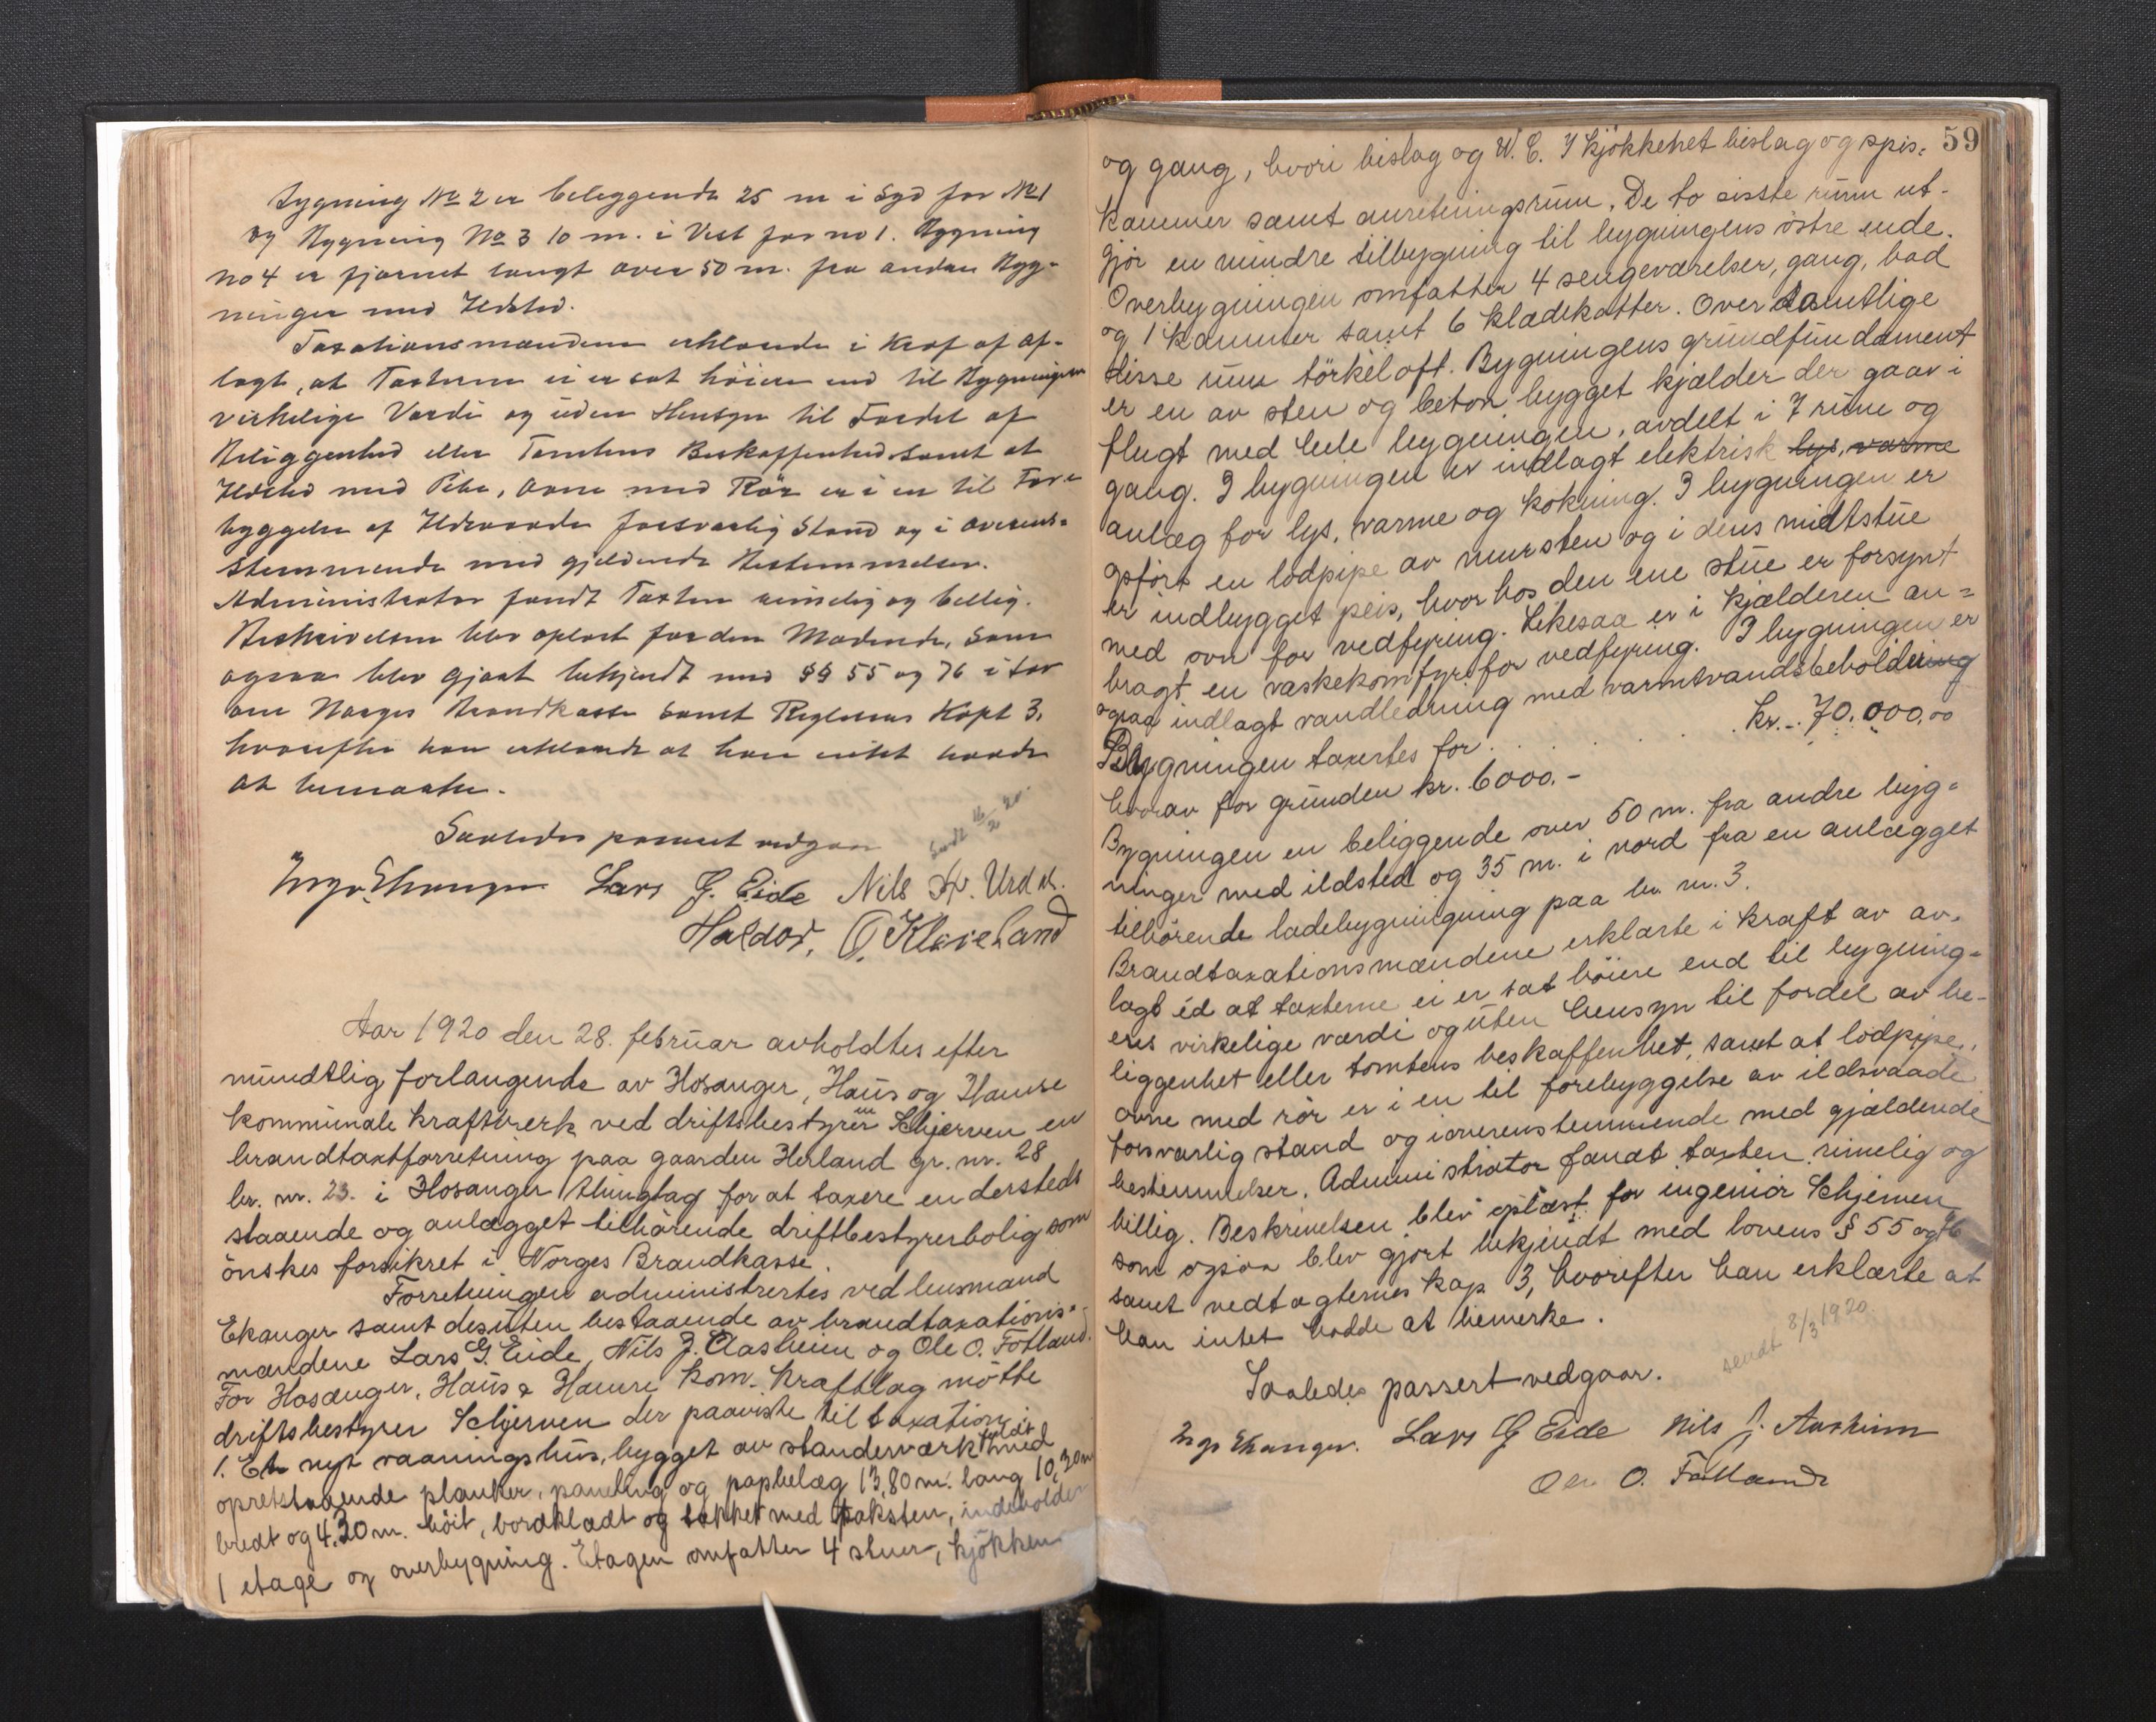 Bygning No 2 er beleggende 25 m i Syd for No 1
og Bygning No 3 10 m. i Vest for no 1. Bygning
no 4 er fjernet langt over 50 m. fra anden Byg-
ninger med Ildsted.
Taxationsmændene erklærede i Kraf af af-
lagt, at Taxterne ei er sat höiere end til Bygningens
virkelige Værdi og uden Hensyn til Fordel af
Beliggenhed eller Tomtens Beskaffenhed samt at
Ildsted med Pibe, Ovne med Rör er i en til Fore-
byggelse af Ildsvaade forsvarlig Stand og i overens-
stemmende med gjeldende Bestemmelser.
Administrator fandt Taxten rimelig og billig.
Beskrivelsen blev oplæst for den Mödende, som
ogsaa blev gjort bekjendt med §§ 55 og 76 i Lov
om Norges Brandkasse samt Reglernes Kapt 3,
hvorefter han erklærede at han intet havde
at bemærke.
Saaledes passeret vedgaar
Sendt 16/2 20.
Ingv. Ekanger Lars G. Eide Nils Urdal.
Haldor. O. Kleiveland
Aar 1920 den 28. februar avholdtes efter
mundtlig forlangende av Hosanger, Haus og Hamre
kommunale kraftverk ved driftsbestyrer Schjerven en
brandtaxtforretning paa gaarden Herland gr. nr. 28
br. nr. 23. i Hosanger thinglag for at taxere en dersteds
staaende og anlægget tilhörende driftbestyrerbolig som
önskes forsikret i Norges Brandkasse.
Forretningen administrertes ved lensmand
Ekanger samt desuten bestaaende av brandtaxations-
mændene Lars G. Eide, Nils J. Aasheim og Ole O. Fotland.
For Hosanger, Haus & Hamre kom. kraftlag mötte
driftsbestyrer Schjerven der paaviste til taxation:
1. Et nyt vaaningshus, bygget av standerværk fyldt med
opretstaaende planker, paneling og papbelæg 13,80 m. lang 10,30 m
bredt og 4,30 m. höit, bordklædt og tækket med taksten, indeholder
1 etage og overbygning. Etagen omfatter 4 stuer, kjökken
59
og gang, hvori bislag og W. C. I kjökkenet bislag og spis-
kammer samt anretningsrum. De to sisste rum ut-
gjör en mindre tilbygning til bygningens östre ende.
Overbygningen omfatter 4 sengeværelser, gang, bad
og 1 kammer samt 6 klædskatter. Over samtlige
disse rum törkeloft. Bygningens grundfundament
er en av sten og beton bygget kjælder der gaar i
flugt med hele bygningen, avdelt i 7 rum og
gang. I bygningen er indlagt elektrisk lys, varme
anlæg for lys, varme og kokning. I bygningen er
opfört en lodpipe av mursten og i dens midtstue
er indbygget peis, hvorhos den ene stue er forsynt
med ovn for vedfyring. Likesaa er i kjælderen an-
bragt en vaskekomfyr for vedfyring. I bygningen er
ogsaa indlagt vandledning med varmtvandsbeholdning
Bygningen taxertes for . . . . . . kr. 70.000,00
hvorav for grunden kr. 6000.-
Bygningen en beliggende over 50 m. fra andre byg-
ninger med ildsted og 35 m. i nord fra en anlægget
tilhörende ladebygningning paa br. nr. 3.
Brandtaxationsmændene erklærte i kraft av av-
lagt ed at taxterne ei er sat höiere end til bygning-
ens virkelige værdi og uten hensyn til fordel av be-
liggenhet eller tomtens beskaffenhet, samt at lodpipe,
ovne med rör er i en til forebyggelse av ildsvaade
forsvarlig stand og i overenstemmende med gjældende
bestemmelser. Administrator fandt taxten rimelig og
billig. Beskrivelsen blev oplæst for ingeniör Schjerven
som ogsaa blev gjort bekjendt med lovens § 55 og 76
samt vedtægternes kap 3, hvorefter han erklærte at
han intet hadde at bemerke.
sendt 8/3 1920.
Saaledes passert vedgaar.
Ingv Ekanger. Lars G Eide Nils J. Aasheim
Ole O. Fotland